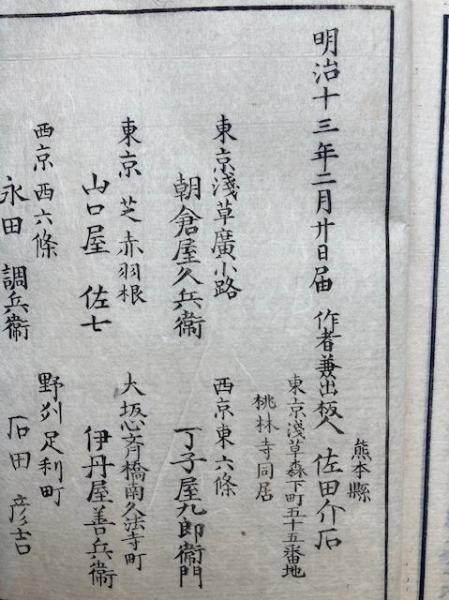 明治十三年二月廿日届
熊本縣
作者兼出板人 佐田介石
東京淺草森下町五十五番地
桃林寺同居
東京淺草廣小路
朝倉屋久兵衞
西京東六條
丁子屋九郎衞門
東京芝赤羽根
山口屋佐七
大坂心斉橋南久法寺町
伊丹屋善兵衞
西京西六條
永田調兵衞
野刕足利町
石田彦吉